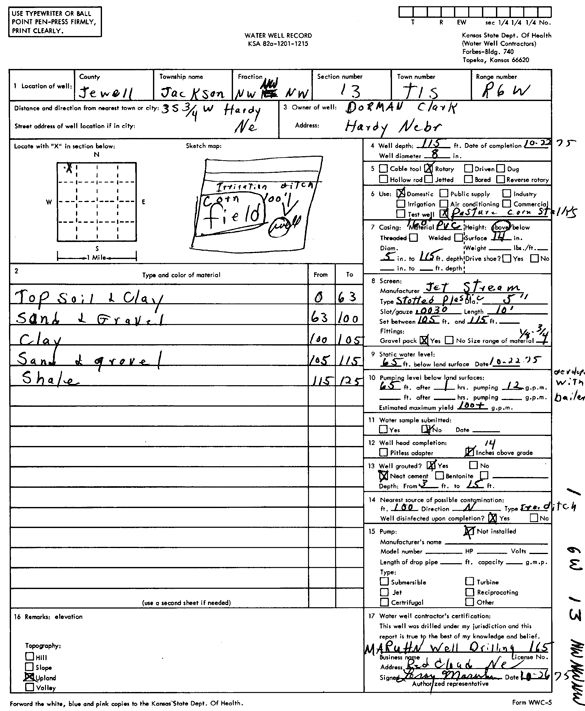 USE TYPEWRITER OR BALL
POINT PEN-PRESS FIRMLY,
PRINT CLEARLY.
WATER WELL RECORD
KSA 82a-1201-1215
T R EW sec 1/4 1/4 1/4 No.
Kansas State Dept. Of Health
(Water Well Contractors)
Forbes-Bldg. 740
Topeka, Kansas 66620
1 Location of well: County Jewell Township name Jackson Fraction NW NW NW Section number 13 Town number T1S Range number R6W
Distance and direction from nearest town or city: 3S 3/4 W Hardy Ne
Street address of well location if in city:
3 Owner of well: DORMAN Clark
Address: Hardy Nebr
Locate with "X" in section below:
N
X
W E
S
1 Mile
Sketch map:
Irritation ditch
Corn field
100'
well
4 Well depth: 115 ft. Date of completion 10-22 75
Well diameter 8 in.
5 Cable tool X Rotary Driven Dug
Hollow rod Jetted Bored Reverse rotary
6 Use: X Domestic Public supply Industry
Irrigation Air conditioning Commercial
Test well X Pasture corn Stalks
7 Casing: 160' Material PVC Height: Above/below
Threaded Welded Surface 14 in.
Diam. Weight lbs./ft.
5 in. to 115 ft. depth Drive shoe? Yes No
in. to ft. depth
2 Type and color of material From To
Top Soil & Clay 0 63
Sand & Gravel 63 100
Clay 100 105
Sand & gravel 105 115
Shale 115 125
(use a second sheet if needed)
8 Screen:
Manufacturer Jet Stream
Type Slotted Plastic Dia. 5"
Slot/gauge .0030 Length 10'
Set between 105 ft. and 115 ft.
Fittings:
Gravel pack X Yes No Size range of material 1/8 3/4
9 Static water level:
65 ft. below land surface Date 10-22-75
10 Pumping level below land surfaces:
65 ft. after 1 hrs. pumping 12 g.p.m.
ft. after hrs. pumping g.p.m.
Estimated maximum yield 100+ g.p.m.
with
bailer
11 Water sample submitted:
Yes X No Date
12 Well head completion:
Pitless adapter X 14 Inches above grade
13 Well grouted? X Yes No
X Neat cement Bentonite
Depth: From 3 ft. to 15 ft.
14 Nearest source of possible contamination:
ft. 100 Direction N Type Irr. ditch
Well disinfected upon completion? X Yes No
15 Pump: X Not installed
Manufacturer's name
Model number HP Volts
Length of drop pipe ft. capacity g.m.p.
Type:
Submersible Turbine
Jet Reciprocating
Certrifugal Other
1 6W 13 NW NW NW
16 Remarks: elevation
Topography:
Hill
Slope
X Upland
Valley
17 Water well contractor's certification:
This well was drilled under my jurisdiction and this
report is true to the best of my knowledge and belief.
MARUHN Well Drilling 165
Business name License No.
Address Red Cloud Ne
Signed Leroy Maruhn Date 10-26 75
Authorized representative
Forward the white, blue and pink copies to the Kansas State Dept. Of Health.
Form WWC-5